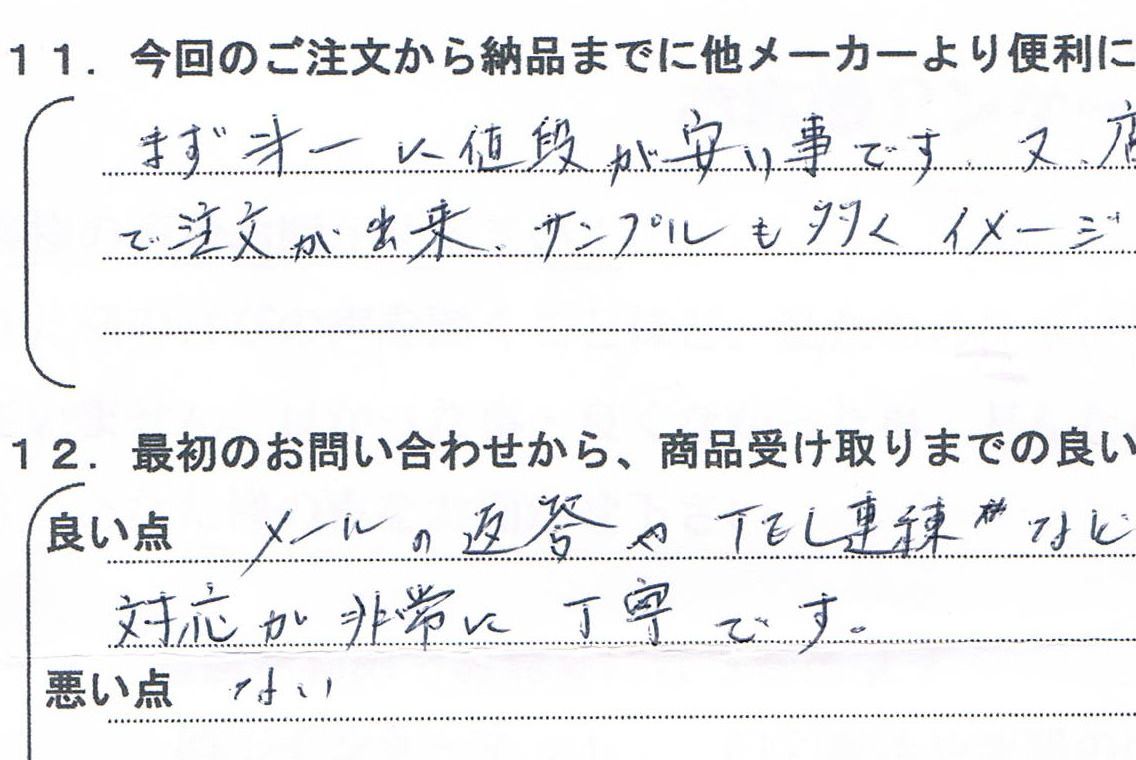 11．今回のご注文から納品までに他メーカーより便利に
まず才一に値段が安い事です。又、店
で注文が出来、サンプルも多く イメージ
12．最初のお問い合わせから、商品受け取りまでの良い
良い点 メールの返答やTEL連練 など
対応が非常に丁寧です。
悪い点 ない